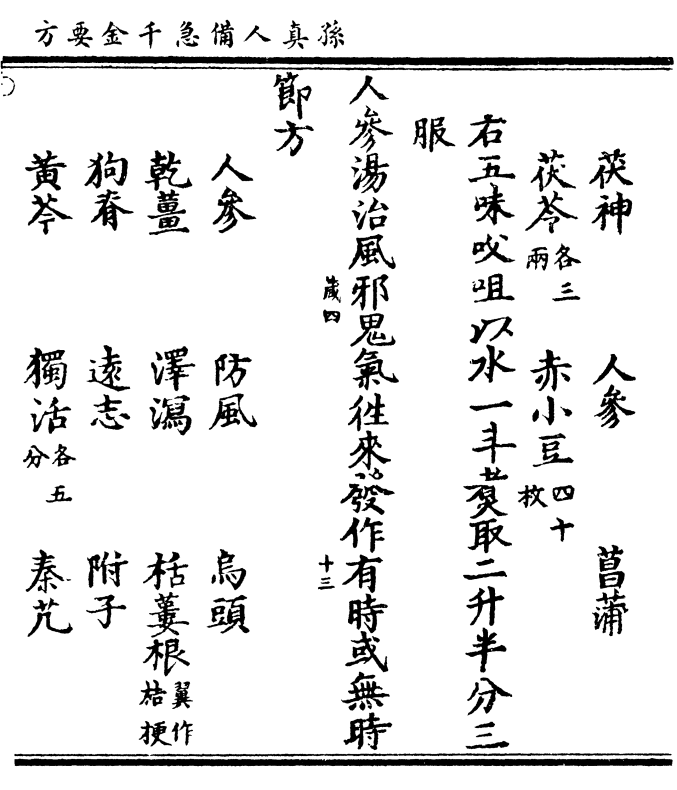 孫真人備急千金要方
茯神 人參 菖蒲
茯苓各三兩 赤小豆四十枚
右五味㕮咀以水一斗煑取二升半分三
服
人參湯治風邪鬼氣徃來發作有時或無時
歲四 十三
節方
人參 防風 烏頭
乾薑 澤瀉 栝蔞根翼作桔梗
狗脊 遠志 附子
黃芩 獨活各五分 秦艽